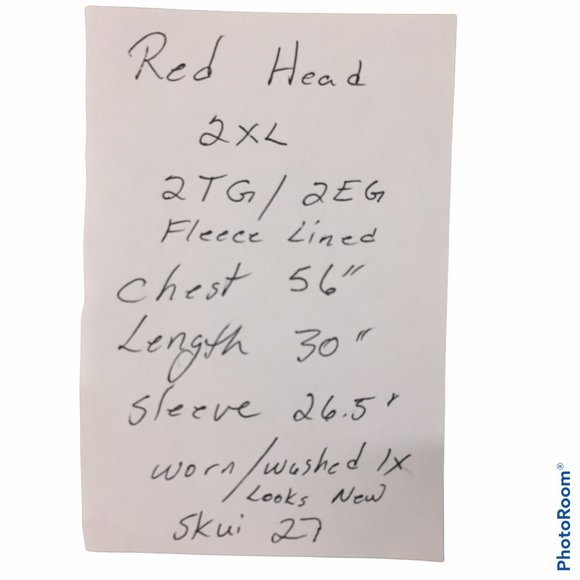 Red Head
2XL
2TG/2EG
Fleece Lined
Chest 56"
Length 30"
Sleeve 26.5"
worn/washed 1X
Looks New
Skui 27
PhotoRoom®